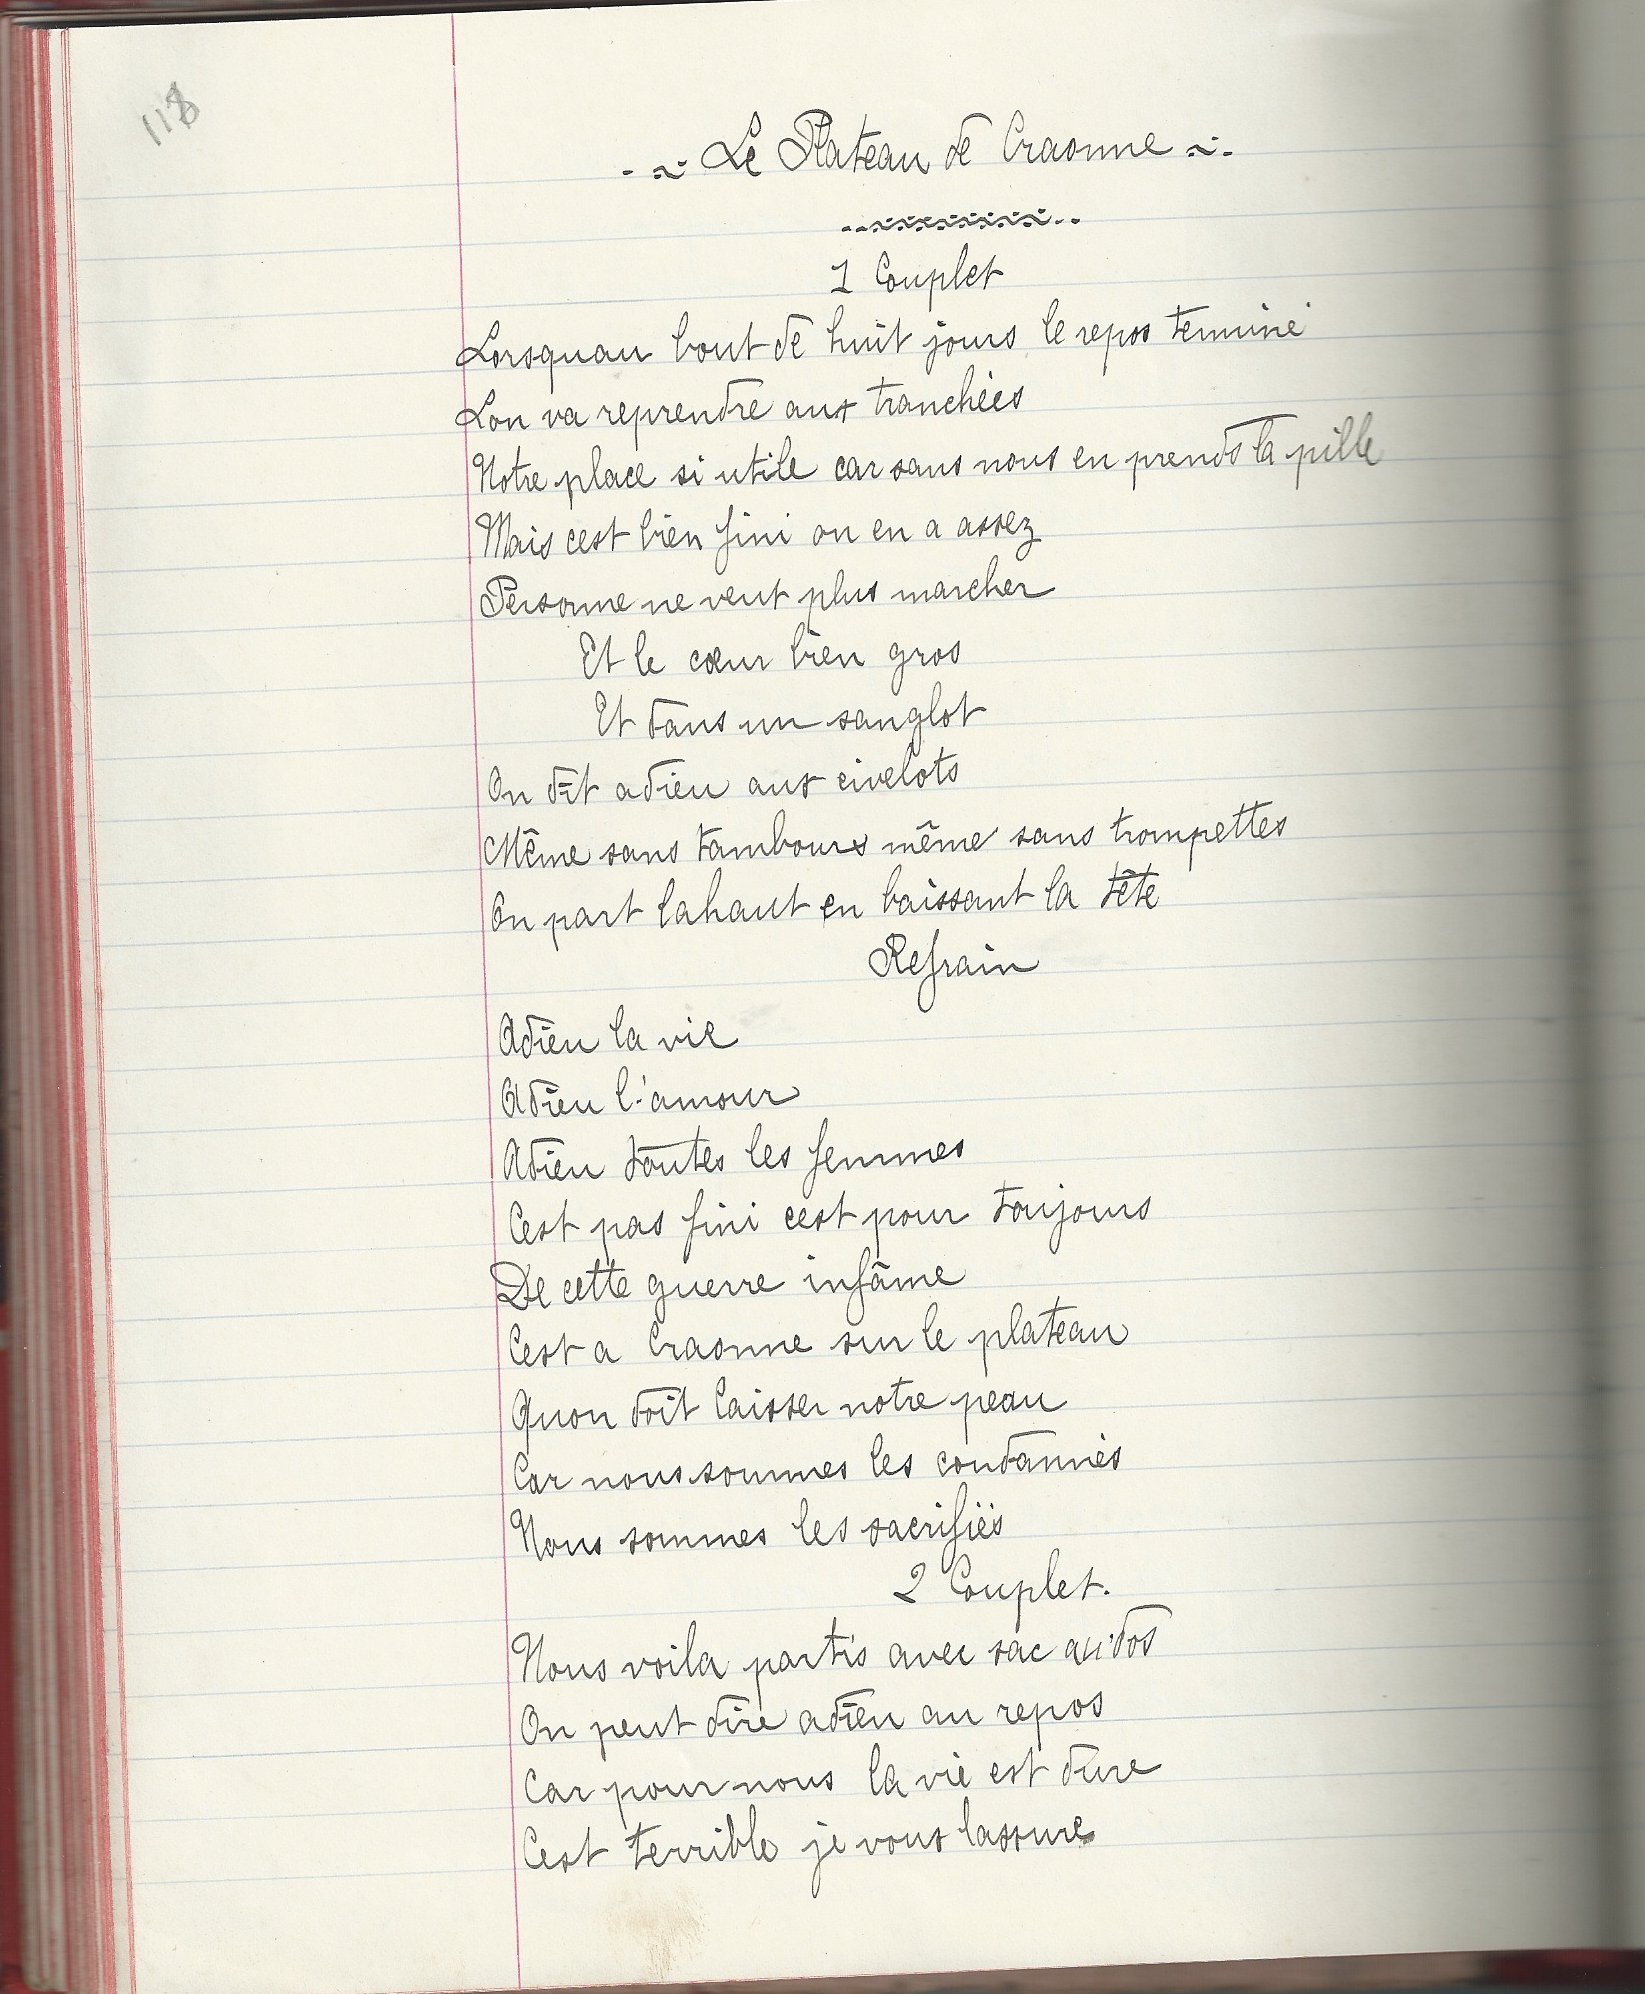 118
Le Plateau de Craonne
1 Couplet
Lorsquau bout de huit jours le repos terminé
Lon va reprendre aux tranchées
Notre place si utile car sans nous en prends la pille
Mais cest bien fini on en a assez
Personne ne veut plus marcher
Et le cœur bien gros
Et dans un sanglot
On dit adieu aux civelots
Même sans tambours même sans trompettes
On part lahaut en baissant la tête
Refrain
Adieu la vie
Adieu l'amour
Adieu toutes les femmes
Cest pas fini cest pour toujours
De cette guerre infâme
Cest a Craonne sur le plateau
Quon doit laisser notre peau
Car nous sommes les condannés
Nous sommes les sacrifiés
2 Couplet.
Nous voila partis avec sac au dos
On peut dire adieu au repos
Car pour nous la vie est dure
Cest terrible je vous lassure